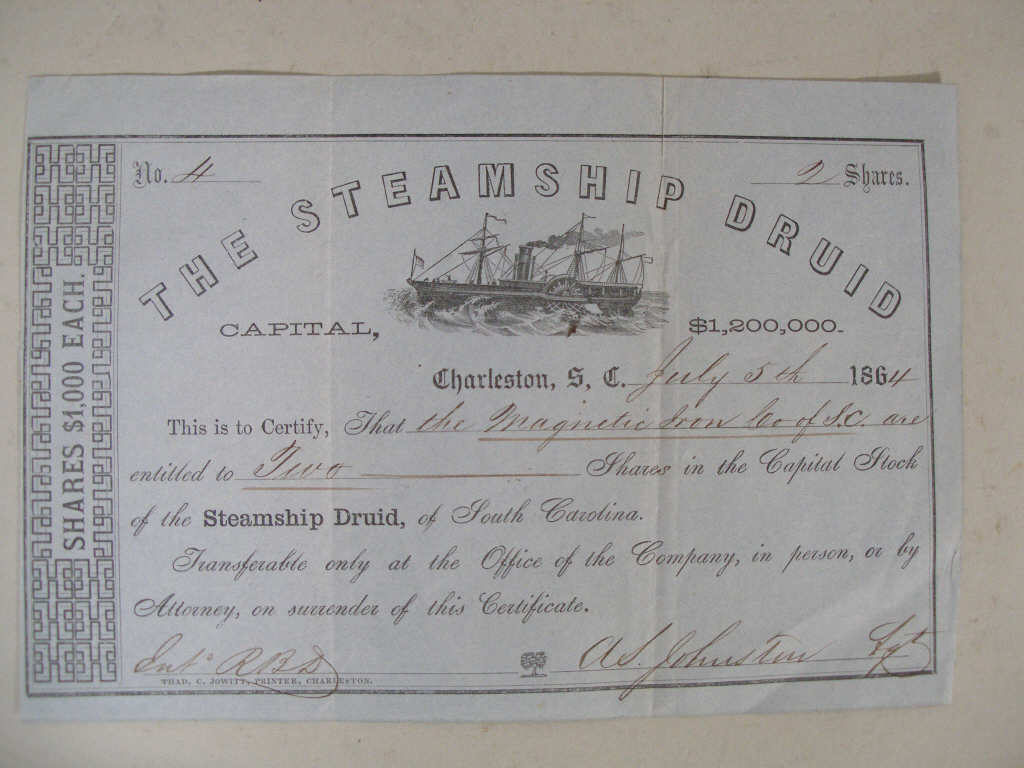 No. 4
2 Shares.
THE STEAMSHIP DRUID
CAPITAL, $1,200,000.
Charleston, S. C. July 5th 1864
This is to Certify, That the Magnetic Iron Co of S.C. are
entitled to Two Shares in the Capital Stock
of the Steamship Druid, of South Carolina.
Transferable only at the Office of the Company, in person, or by
Attorney, on surrender of this Certificate.
A S. Johnston
THAD. C. JOWITT, PRINTER, CHARLESTON.
SHARES $1,000 EACH.